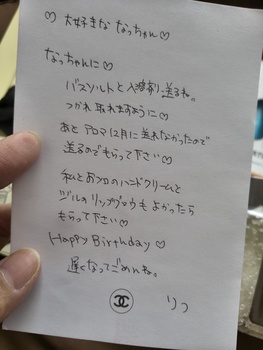 ♡ 大好きな なっちゃん♡
なっちゃんに♡
バスソルトと入浴剤送るね。
つかれ取れますように♡
あと アロマ12月に送れなかったので
送るのでもらって下さい♡
私とおフロのハンドクリームと
ジルのリップグロウもよかったら
もらって下さい♡
Happy Birthday♡
遅くなってごめんね。
りつ